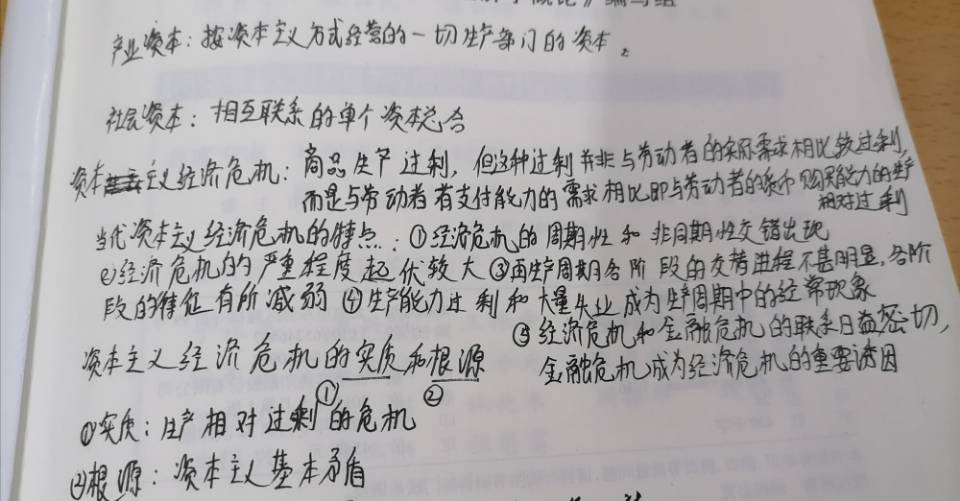 概论》编写组
产业资本：按资本主义方式经营的一切生产部门的资本。
社会资本：相互联系的单个资本总合
资本主义经济危机：商品生产过剩，但这种过剩并非与劳动者的实际需求相比较过剩，
而是与劳动者有支付能力的需求相比即与劳动者的货币购买能力的生产
相对过剩
当代资本主义经济危机的特点：①经济危机的周期性和非周期性交错出现
②经济危机的严重程度起伏较大③再生产周期各阶段的交替进程不甚明显，各阶
段的特征有所减弱④生产能力过剩和大量失业成为生周期中的经常现象
⑤经济危机和金融危机的联系日益密切，
资本主义经济危机的实质和根源
金融危机成为经济危机的重要诱因
① ②
①实质：生产相对过剩的危机
②根源：资本主义基本矛盾